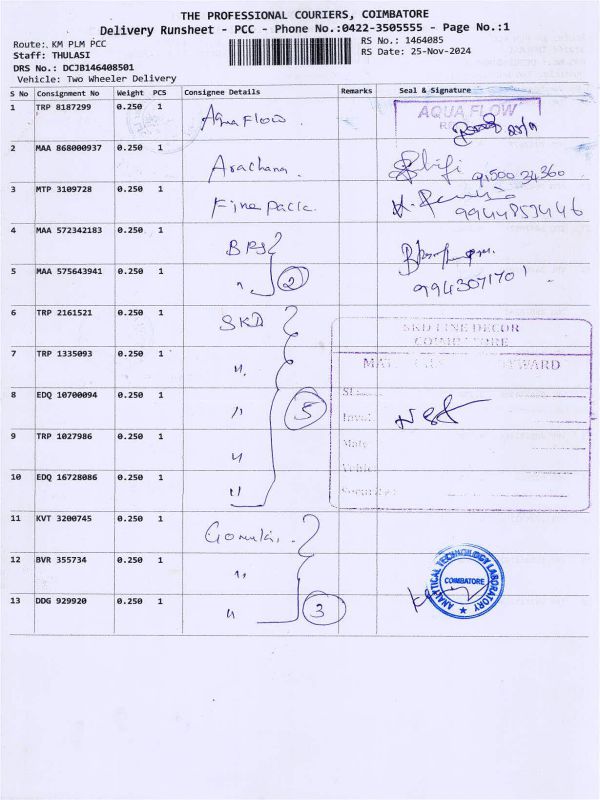 THE PROFESSIONAL COURIERS, COIMBATORE
Delivery Runsheet - PCC - Phone No.:0422-3505555 - Page No.:1
Route: KM PLM PCC
RS No.: 1464085
Staff: THULASI
RS Date: 25-Nov-2024
DRS No.: DCJB146408501
Vehicle: Two Wheeler Delivery
S No Consignment No Weight PCS Consignee Details Remarks Seal & Signature
1 TRP 8187299 0.250 1 Aqua Flow AQUA FLOW
2 MAA 868000937 0.250 1 Arachana. 91500 34360
3 MTP 3109728 0.250 1 Fine pack. 9944853446
4 MAA 572342183 0.250 1 BPJ
5 MAA 575643941 0.250 1 " 2 9943071701
6 TRP 2161521 0.250 1 SKD SKD FINE DECOR
COIMBATORE
7 TRP 1335093 0.250 1 "
8 EDQ 10700094 0.250 1 " 5
9 TRP 1027986 0.250 1 "
10 EDQ 16728086 0.250 1 "
11 KVT 3200745 0.250 1
12 BVR 355734 0.250 1 " ANALYTICAL TECHNOLOGY LABORATORY
COIMBATORE
13 DDG 929920 0.250 1 " 3